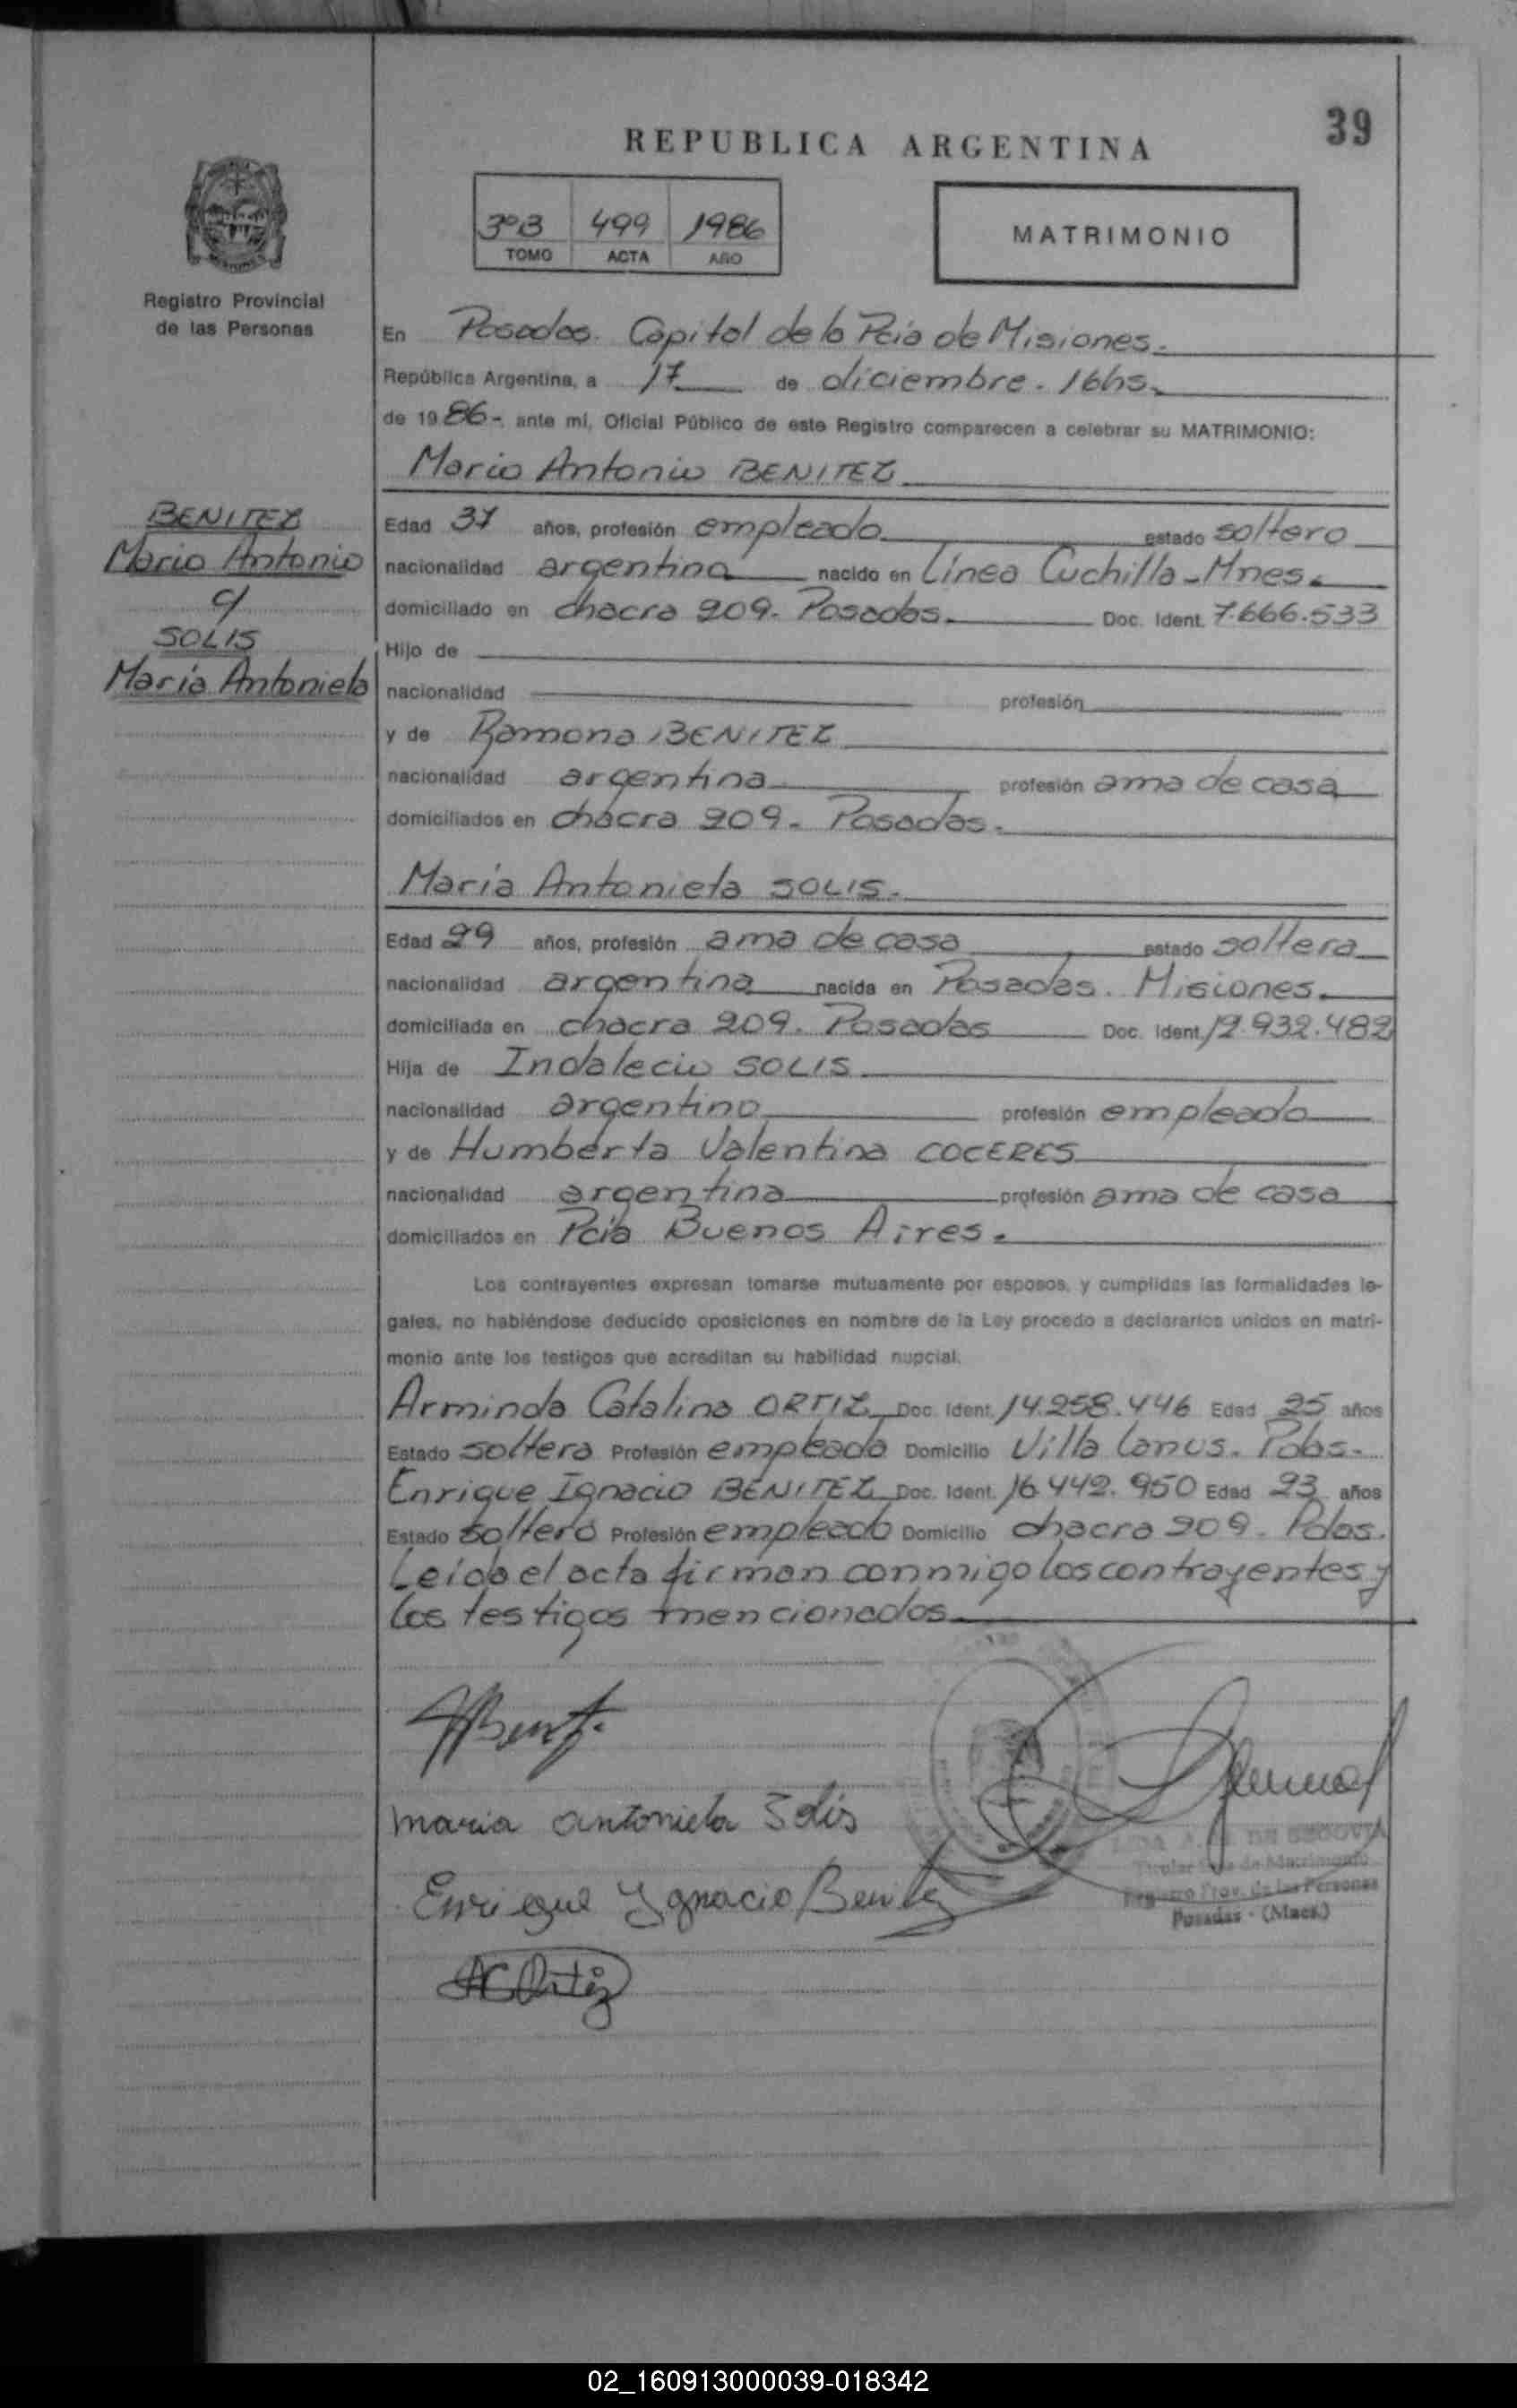 39
REPUBLICA ARGENTINA
3ºB 499 1986
TOMO ACTA AÑO
MATRIMONIO
Registro Provincial
de las Personas
En Posadas. Capital de la Pcia de Misiones.
República Argentina, a 17 de diciembre. 16hs.
de 1986- ante mí, Oficial Público de este Registro comparecen a celebrar su MATRIMONIO:
Mario Antonio BENITEZ
BENITEZ
Mario Antonio
c/
SOLIS
María Antonieta
Edad 37 años, profesión empleado estado soltero
nacionalidad argentina nacido en Línea Cuchilla - Mnes.
domiciliado en chacra 209. Posadas. Doc. Ident. 7.666.533
Hijo de
nacionalidad profesión
y de Ramona BENITEZ
nacionalidad argentina profesión ama de casa
domiciliados en chacra 209. Posadas.
María Antonieta SOLIS.
Edad 29 años, profesión ama de casa estado soltera
nacionalidad argentina nacida en Posadas. Misiones.
domiciliada en chacra 209. Posadas Doc. Ident. 12.932.482
Hija de Indalecio SOLIS
nacionalidad argentino profesión empleado
y de Humberta Valentina COCERES
nacionalidad argentina profesión ama de casa
domiciliados en Pcia Buenos Aires.
Los contrayentes expresan tomarse mutuamente por esposos, y cumplidas las formalidades le-
gales, no habiéndose deducido oposiciones en nombre de la Ley procedo a declararlos unidos en matri-
monio ante los testigos que acreditan su habilidad nupcial.
Arminda Catalina ORTIZ Doc. Ident. 14.258.446 Edad 25 años
Estado soltera Profesión empleada Domicilio Villa Lanus. Pdas.
Enrique Ignacio BENITEZ Doc. Ident. 16.442.950 Edad 23 años
Estado soltero Profesión empleado Domicilio chacra 209. Pdas.
Leída el acta firman conmigo los contrayentes y
los testigos mencionados
maria antonieta Solis
Enrique Ygnacio Benitez
AC Ortiz
DE SEGOVIA
Titular de Matrimonio
Registro Prov. de las Personas
Posadas - (Mnes.)
02_160913000039-018342